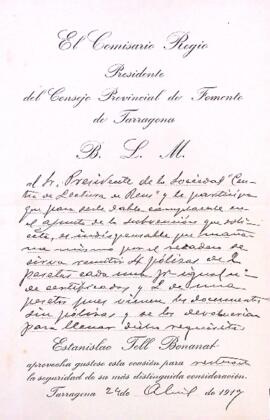 El Comisario Regio
Presidente
del Consejo Provincial de Fomento
de Tarragona
B. L. M.
al Sr. Presidente de la Sociedad "Cen-
tro de Lectura de Reus" y le participa
que para serle dable complacerle en
el asunto de la subvención que soli-
cita, es indispensable que mañana
mismo por el recadero se
sirva remitir 4 pólizas de 2
pesetas cada una
de certificados, y 2 de una
peseta pues vienen los documentos
sin pólizas y se los devolverían
para llenar dicho requisito
Estanislao Tell Bonanat
aprovecha gustoso esta ocasión para reiterarle
la seguridad de su más distinguida consideración.
Tarragona 24 de Abril de 1917